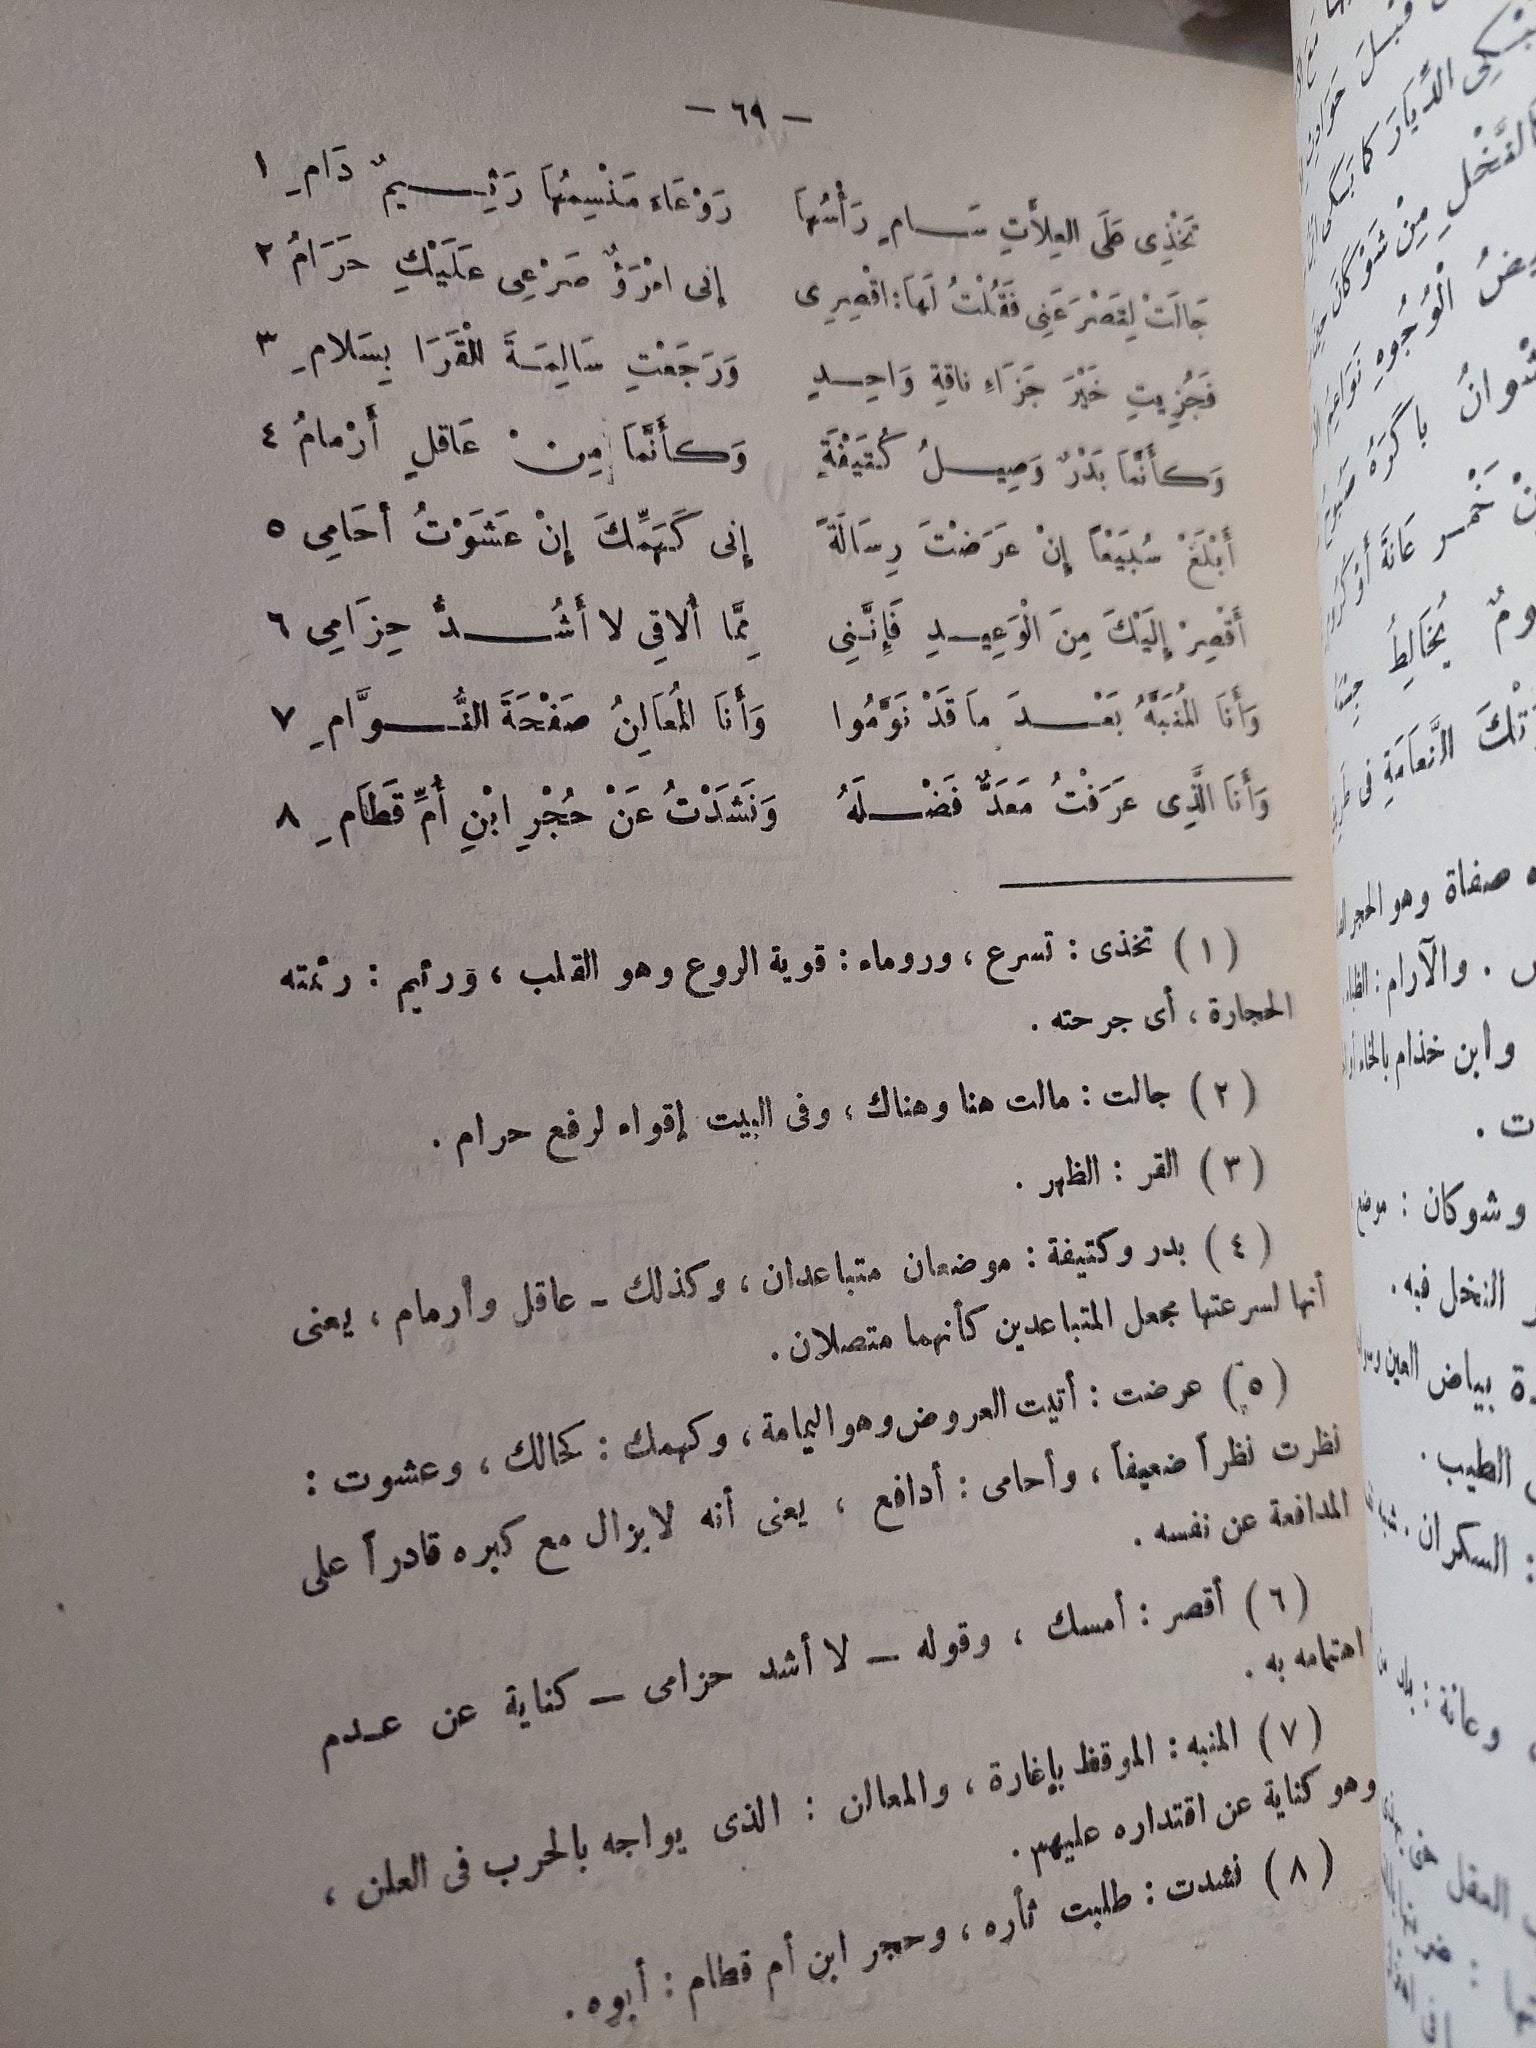 — ٦٩ —
تَخْذِى عَلَى العِلاَّتِ سَــامٍ رَأْسُهَا رَوْعَاء مَنْسِمُهَا رَثِــيمٌ دَامِ ١
جَالَتْ لِتَصْرَعَنِى فَقُلْتُ لَهَا: اقْصِرِى إنى امْرَؤٌ صَرْعِى عَلَيْكِ حَرَامُ ٢
فَجُزِيتِ خَيْرَ جَزَاءِ ناقةِ وَاحِــدٍ وَرَجَعْتِ سَالِمَةَ الْقَرَا بِسَلامِ ٣
وَكأَنَّمَا بَدْرٌ وَصِيــلُ كُتَيْفَةٍ وَكأَنَّمَا مِنْ عَاقلٍ أَرْمامُ ٤
أَبْلَغْ سُبَيْعاً إنْ عرَضْتَ رِسَالَةً إنى كَهَمِّكَ إنْ عَشَوْتُ أحَامِى ٥
أَقْصِرْ إلَيْكَ مِنَ الْوَعِيــدِ فَإِنَّنِى مِمَّا أُلاقِى لا أَشُــدُّ حِزَامِى ٦
وَأَنَا المُنَبَّهُ بَعْــدَ مَا قَدْ نَوَّمُوا وَأَنَا المُعَالِنُ صَفْحَةَ النُّــوَّامِ ٧
وَأَنَا الَّذِى عرَفْتُ مَعَدٌّ فَضْــلَهُ وَنَشَدْتُ عَنْ حُجْرِ ابْنِ أُمِّ قَطَامِ ٨
(١) تخذى : تسرع ، وروماء : قوية الروع وهو القلب ، ورثيم : رثمته
الحجارة ، أى جرحته .
(٢) جالت : مالت هنا وهناك ، وفى البيت إقواء لرفع حرام .
(٣) القر : الظهر .
(٤) بدر وكتيفة : موضعان متباعدان ، وكذلك – عاقل وأرمام ، يعنى
أنها لسرعتها تجعل المتباعدين كأنهما متصلان .
(٥) عرضت : أتيت العروض وهو اليمامة ، وكهمك : كحالك ، وعشوت :
نظرت نظراً ضعيفاً ، وأحامى : أدافع ، يعنى أنه لا يزال مع كبره قادراً على
المدافعة عن نفسه .
(٦) أقصر : أمسك ، وقوله – لا أشد حزامى – كناية عن عــدم
اهتمامه به .
(٧) المنبه : الموقظ بإغارة ، والمعالن : الذى يواجه بالحرب فى العلن ،
وهو كناية عن اقتداره عليهم .
(٨) نشدت : طلبت ثأره ، وحجر ابن أم قطام : أبوه .
قَبْلَ
الدِّيَارَ كما
مِنْ شَوْكَانَ
الْوُجُوهِ نَوَاعِمُ
خَمْــرِ عَانَةَ أَوْ
يُخَالِطُ
النَّعَامَةِ فى
صفاة وهو الحجر
. والآرام : الظباء
وابن خذام بالخاء
وشوكان : موضع
النخل فيه .
بياض العين
الطيب .
: السكران .
وعانة :
العقل